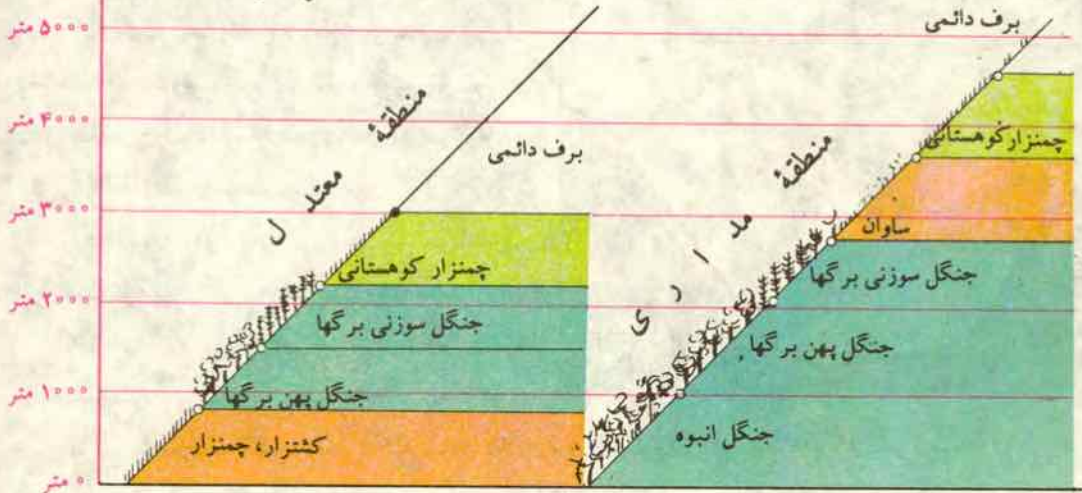 ۵۰۰۰ متر
۴۰۰۰ متر
۳۰۰۰ متر
۲۰۰۰ متر
۱۰۰۰ متر
۰ متر
منطقهٔ معتدل
برف دائمی
چمنزار کوهستانی
جنگل سوزنی برگها
جنگل پهن برگها
کشتزار، چمنزار
منطقهٔ مداری
برف دائمی
چمنزار کوهستانی
ساوان
جنگل سوزنی برگها
جنگل پهن برگها
جنگل انبوه